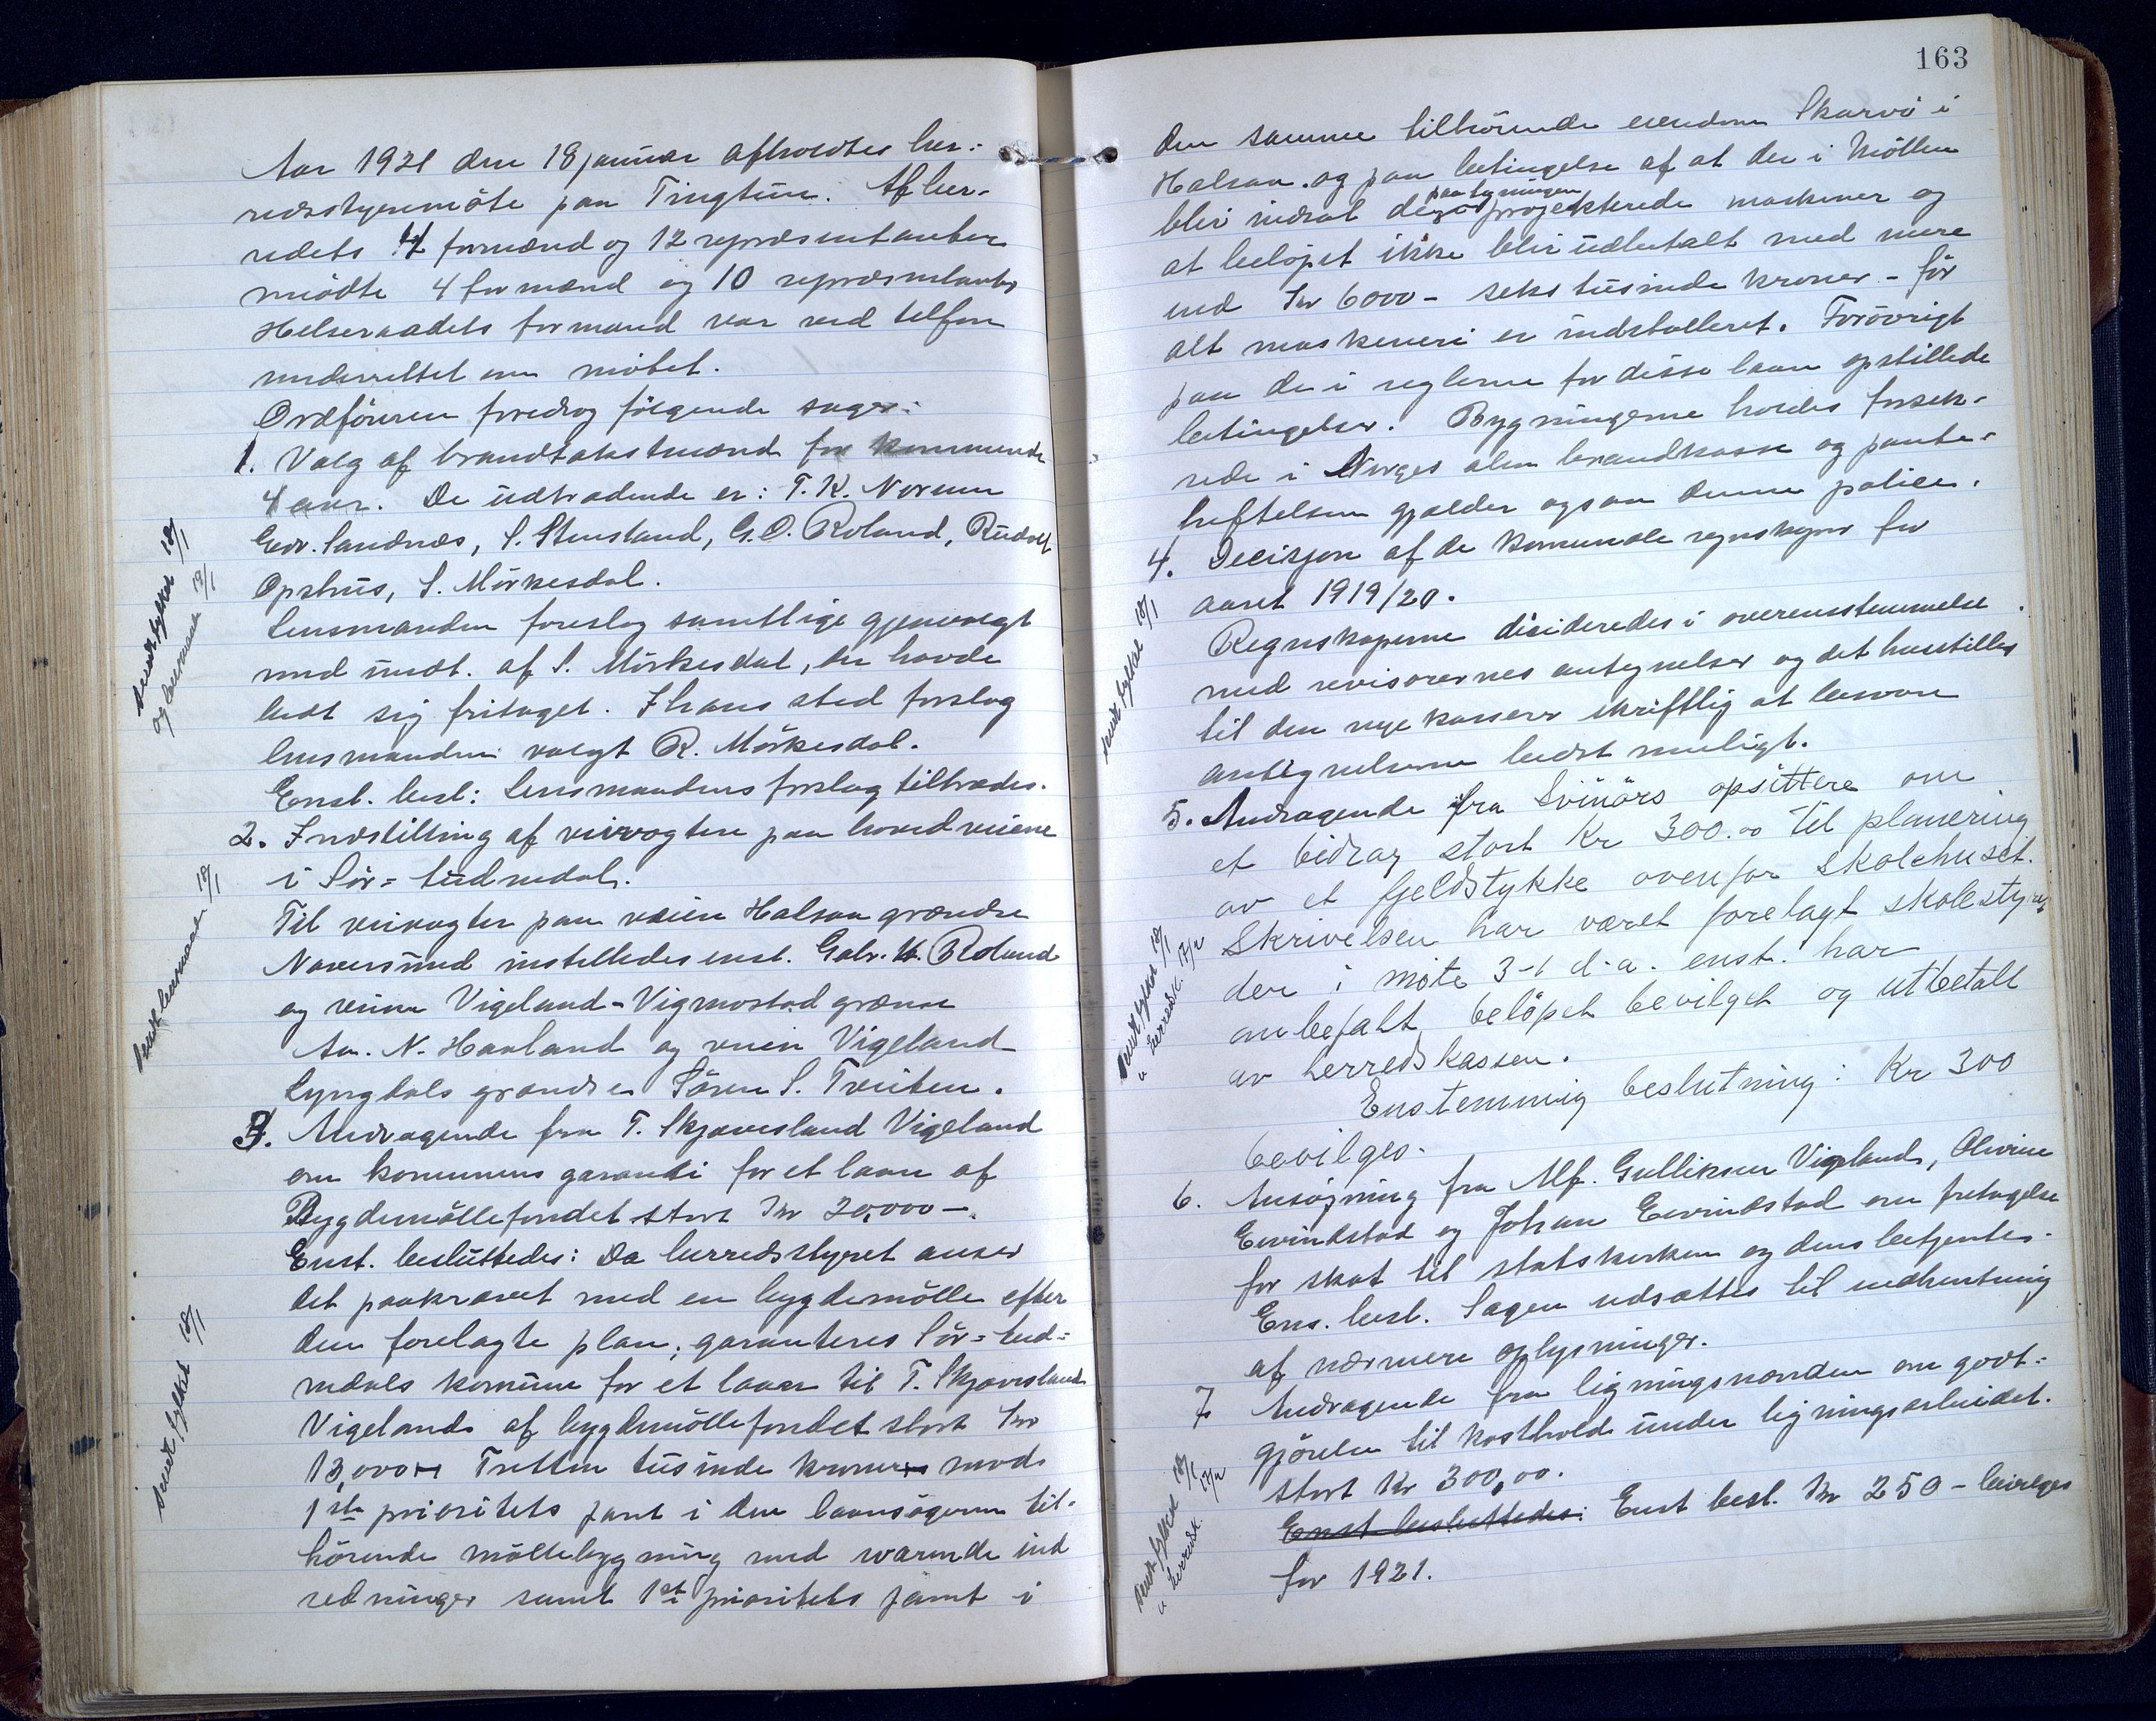 Aar 1921 den 18 januar afholdtes her-
redsstyremöte paa Tingtun. Af her-
redets 4 formænd og 12 repræsentanter
mödte 4 formænd og 10 repræsentanter
Helseraadets formand var ved telfon
underrettet om mötet.
Ordföreren foredrog fölgende sager:
1. Valg af brandtakstmænd for kommende
4 aar. De udtrædende er: T. K. Norum
Edv. Sandnæs, S. Stensland, G. O. Roland, Rudolf
Opshus, S. Mörkesdal.
Lensmanden foreslog samtlige gjenvalgt
med undt. af S. Mörkesdal, der havde
bedt sig fritaget. I hans sted forslog
lensmanden valgt R. Mörkesdal.
Enst. besl: Lensmandens forslag tiltrædes.
sendt fylket 18/1
og lensmand 19/1
2. Indstilling af veivogtere paa hovedveiene
i Sör=Audnedal.
Til veivogter paa veien Halsaa grændse
Naversund instilledes enst. Gabr. K. Roland
og veien Vigeland-Vigmostad grænse
Aa. N. Haaland og veien Vigeland
Lyngdals grændse Sören S. Tveiten.
sendt lensmand 18/1
3. Andragende fra T. Skjævesland Vigeland
om kommunens garanti for et laan af
Bygdemöllefondet stort Kr 20,000-.
Enst. besluttedes: Da herredsstyret anser
det paakrævet med en bygdemölle efter
den forelagte plan, garanteres Sör=Aud=
nedals komune for et laan til T. Skjævesland
Vigeland af bygdemöllefondet stort Kr
13,000 Tretten tusinde kroner mod
1ste prioritets pant i den laansögeren til-
hörende möllebygning med værende ind
redninger samt 1st prioritets pant i
sendt fylket 18/1
163
den samme tilhörende eiendom Skarvö i
Halsaa. og paa betingelse af at der i Möllen
blir indsat de paa tegningen projekterede maskiner og
at belöpet ikke blir udbetalt med mere
end Kr 6000- seks tusinde kroner - för
alt maskineri er indstalleret. Forövrigt
paa de i reglerne for disse laan opstillede
betingelser. Bygningerne holdes forsik-
rede i Norges alm brandkasse og pante-
heftelsen gjælder ogsaa denne police.
4. Decisjon af de komunale regnskaper for
aaret 1919/20.
Regnskaperne decideredes i overensstemmelse
med revisorernes antegnelser og det henstilles
til den nye kasserer skriftlig at besvare
antegnelserne bedst muligt.
sendt fylket 18/1
5. Andragende fra Svinörs opsittere om
et bidrag stort Kr 300.00 til planering
av et fjeldstykke ovenfor skolehuset.
Skrivelsen har været forelagt skolestyret,
der i möte 3-1 d.a. enst. har
anbefalt belöpet bevilget og utbetalt
av herredskassen.
Enstemmig beslutning: Kr 300
bevilges.
sendt fylket 18/1
" herredsk. 12/2
6. Ansögning fra Alf. Gulliksen Vigeland, Olivine
Eivindstad og Johan Eivindstad om fritagelse
for skat til statskirken og dens betjente.
Ens. besl. Sagen udsættes til indhentning
af nærmere oplysninger.
7. Andragende fra ligningsnævnden om godt-
gjörelse til kosthold under ligningsarbeidet.
stort Kr 300,00.
Enst besluttedes: Enst besl. Kr 250 - bevilges
for 1921.
sendt fylket 18/1
" herredsk. 12/2